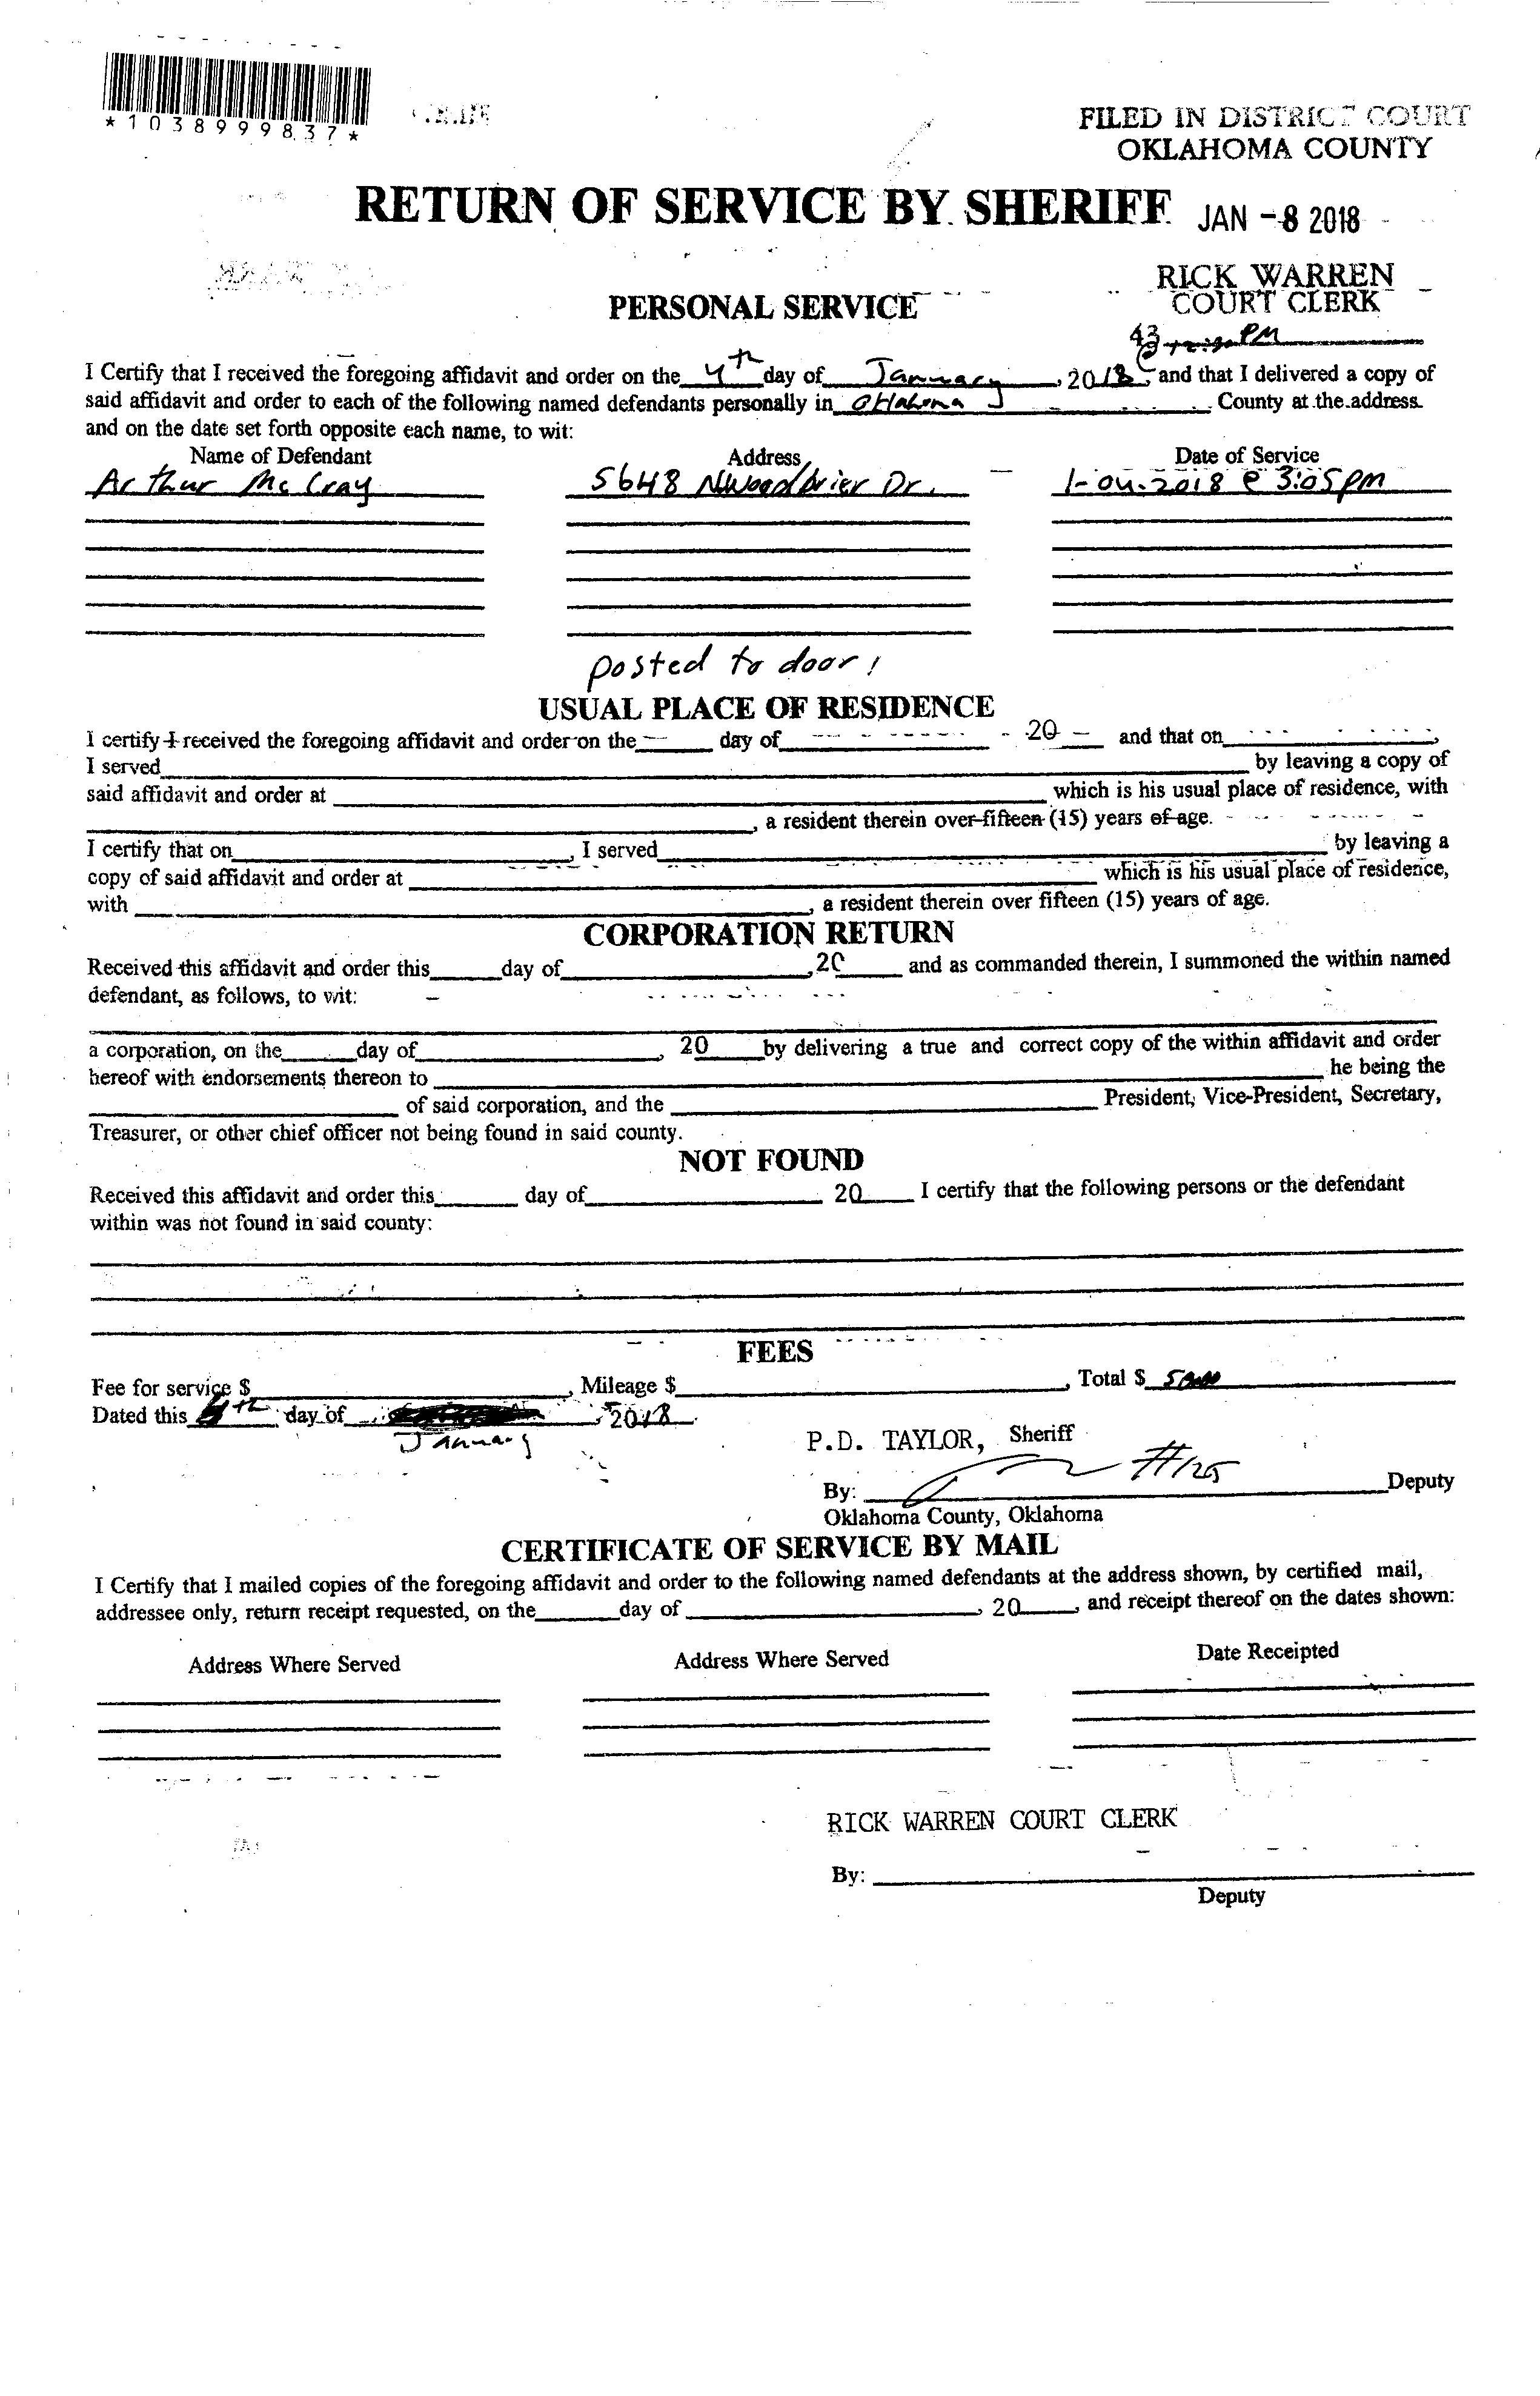 *1038999837*
FILED IN DISTRICT COURT
OKLAHOMA COUNTY
RETURN OF SERVICE BY SHERIFF
JAN -8 2018
RICK WARREN
COURT CLERK
PERSONAL SERVICE
43 PM
I Certify that I received the foregoing affidavit and order on the 4th day of January, 2018, and that I delivered a copy of
said affidavit and order to each of the following named defendants personally in Oklahoma County at the address
and on the date set forth opposite each name, to wit:
Name of Defendant Address Date of Service
Arthur McCray 5648 NWoodbrier Dr. 1-04-2018 @ 3:05pm
posted to door!
USUAL PLACE OF RESIDENCE
I certify I received the foregoing affidavit and order on the day of 20 and that on ,
I served by leaving a copy of
said affidavit and order at which is his usual place of residence, with
, a resident therein over fifteen (15) years of age.
I certify that on , I served by leaving a
copy of said affidavit and order at which is his usual place of residence,
with , a resident therein over fifteen (15) years of age.
CORPORATION RETURN
Received this affidavit and order this day of ,20 and as commanded therein, I summoned the within named
defendant, as follows, to wit:
a corporation, on the day of , 20 by delivering a true and correct copy of the within affidavit and order
hereof with endorsements thereon to he being the
of said corporation, and the President, Vice-President, Secretary,
Treasurer, or other chief officer not being found in said county.
NOT FOUND
Received this affidavit and order this day of 20 I certify that the following persons or the defendant
within was not found in said county:
FEES
Fee for service $ , Mileage $ , Total $
Dated this 4th day of , 2018
January
P.D. TAYLOR, Sheriff
By: #125 Deputy
Oklahoma County, Oklahoma
CERTIFICATE OF SERVICE BY MAIL
I Certify that I mailed copies of the foregoing affidavit and order to the following named defendants at the address shown, by certified mail,
addressee only, return receipt requested, on the day of , 20 , and receipt thereof on the dates shown:
Address Where Served Address Where Served Date Receipted
RICK WARREN COURT CLERK
By:
Deputy